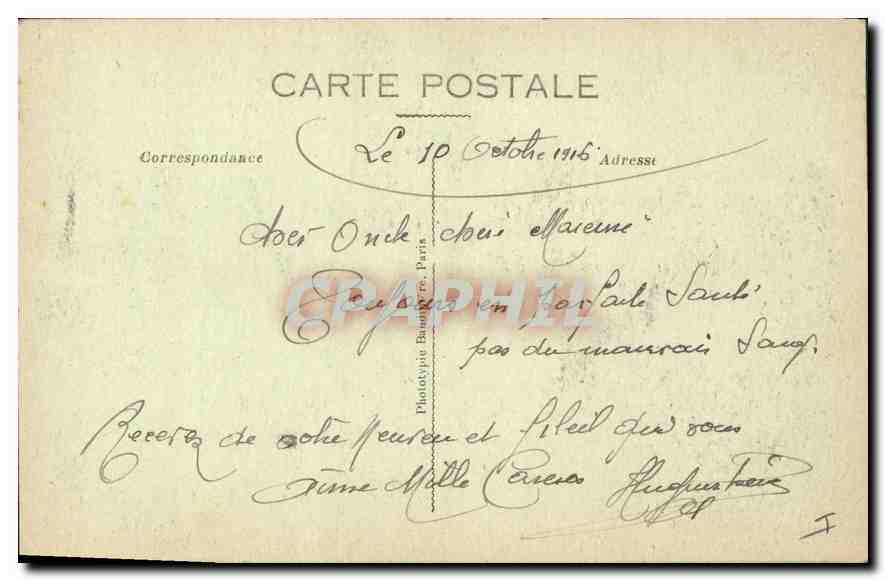 CARTE POSTALE
Correspondance
Le 10 Octobre 1916
Adresse
cher Oncle cheri
CPAPHIL
Toujours en parfaite Santé
pas du mauvais Sang.
Recevez de votre Neuveu et filleul qui vous
aime Mille Careses
Phototypie Baudinière, Paris